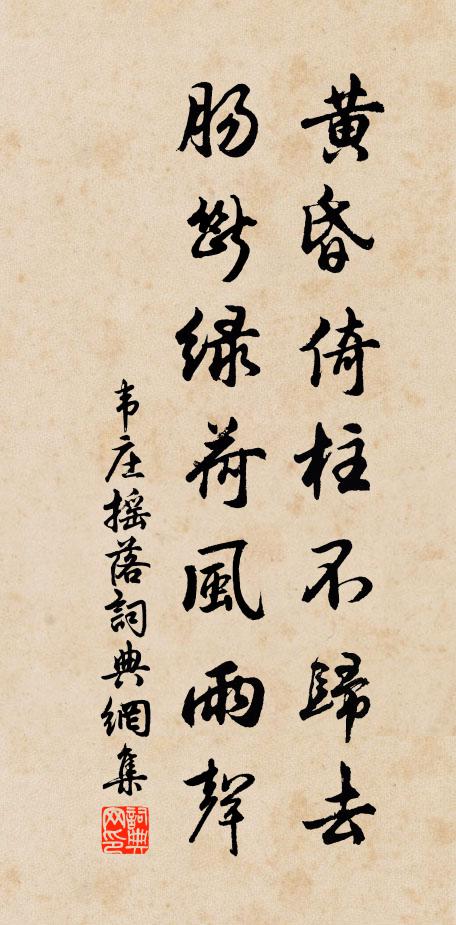 黄昏倚柱不歸去
肠斷绿荷風雨聲
韦庄摇落詞典網集
詞典网印